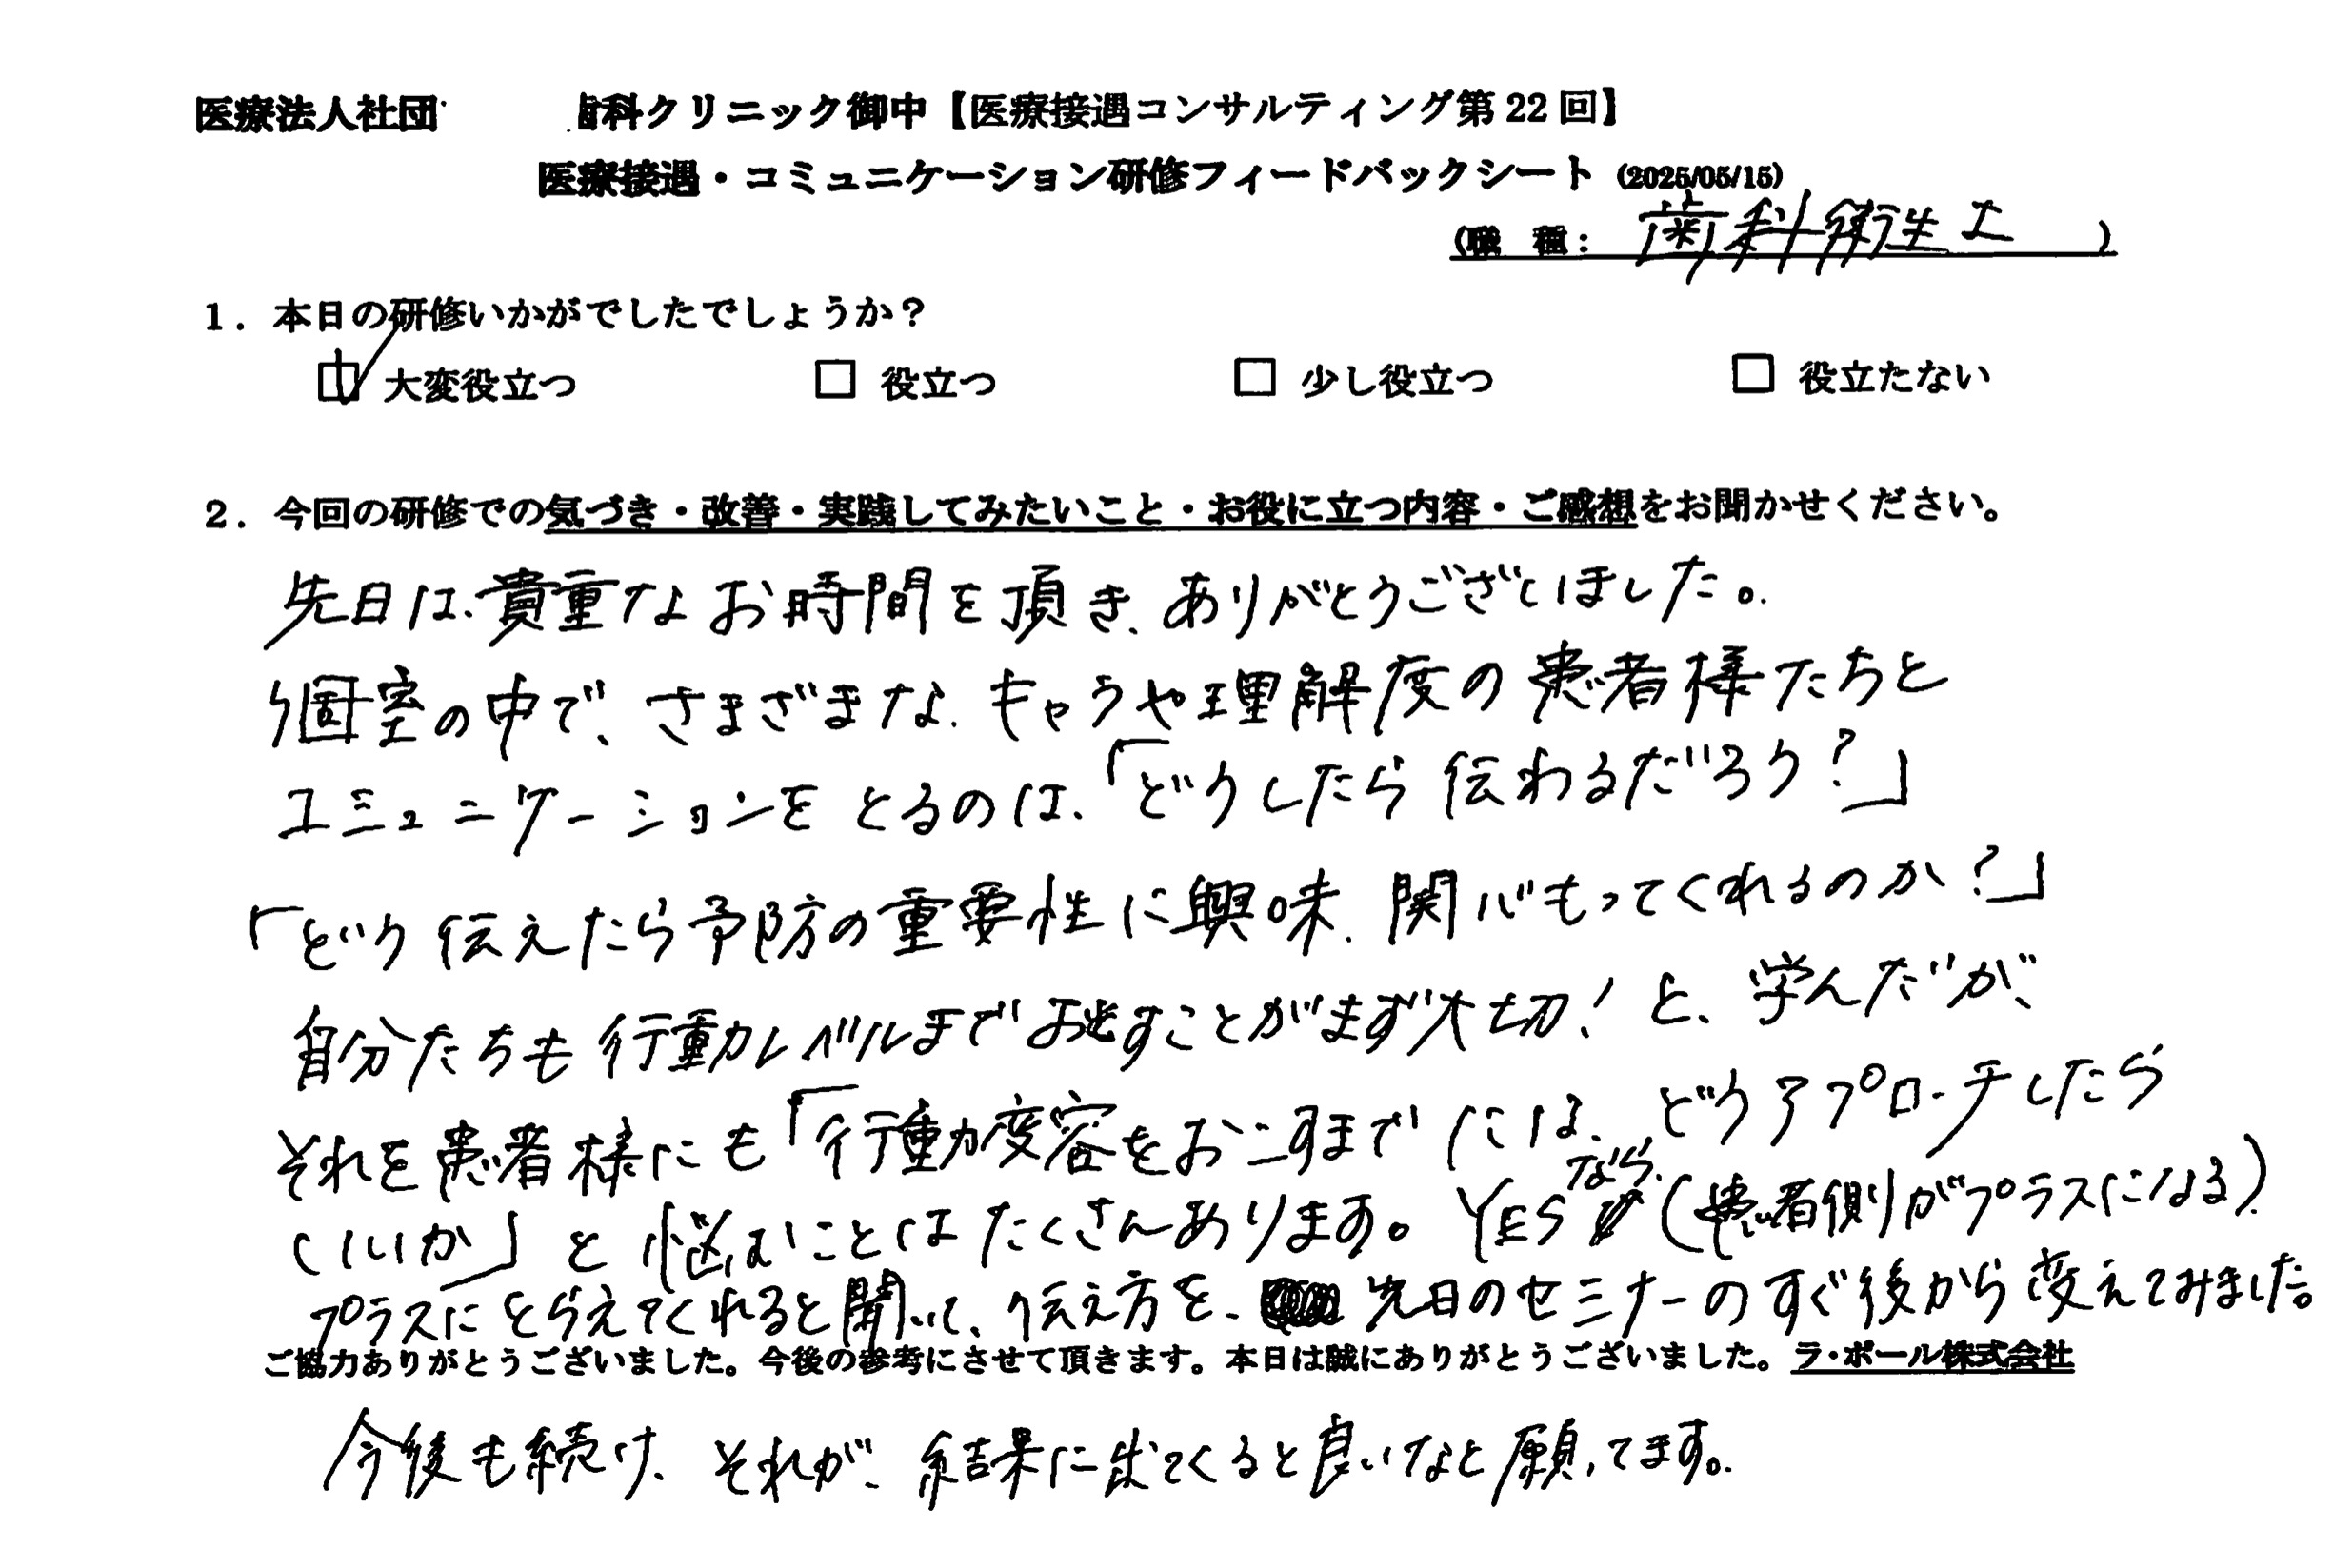 医療法人社団 歯科クリニック御中【医療接遇コンサルティング第22回】
医療接遇・コミュニケーション研修フィードバックシート (2025/05/15)
(職 種: 歯科衛生士 )
1. 本日の研修いかがでしたでしょうか?
☑ 大変役立つ □ 役立つ □ 少し役立つ □ 役立たない
2. 今回の研修での気づき・改善・実践してみたいこと・お役に立つ内容・ご感想をお聞かせください。
先日は、貴重なお時間を頂き、ありがとうございました。
個室の中で、さまざまな、キャラや理解度の患者様たちと
コミュニケーションをとるのは、「どうしたら伝わるだろう?」
「どう伝えたら予防の重要性に興味、関心もってくれるのか?」
自分たちも行動レベルまでおとすことがまず大切!と、学んだが、
それを患者様にも「行動変容をおこすまでには、どうアプローチしたら
いいか」と悩むことはたくさんあります。YESなら(患者側がプラスになる)
プラスにとらえてくれると聞いて、伝え方を、先日のセミナーのすぐ後から変えてみました。
ご協力ありがとうございました。今後の参考にさせて頂きます。本日は誠にありがとうございました。ラ・ポール株式会社
今後も続け、それが、結果に出てくると良いなと願ってます。